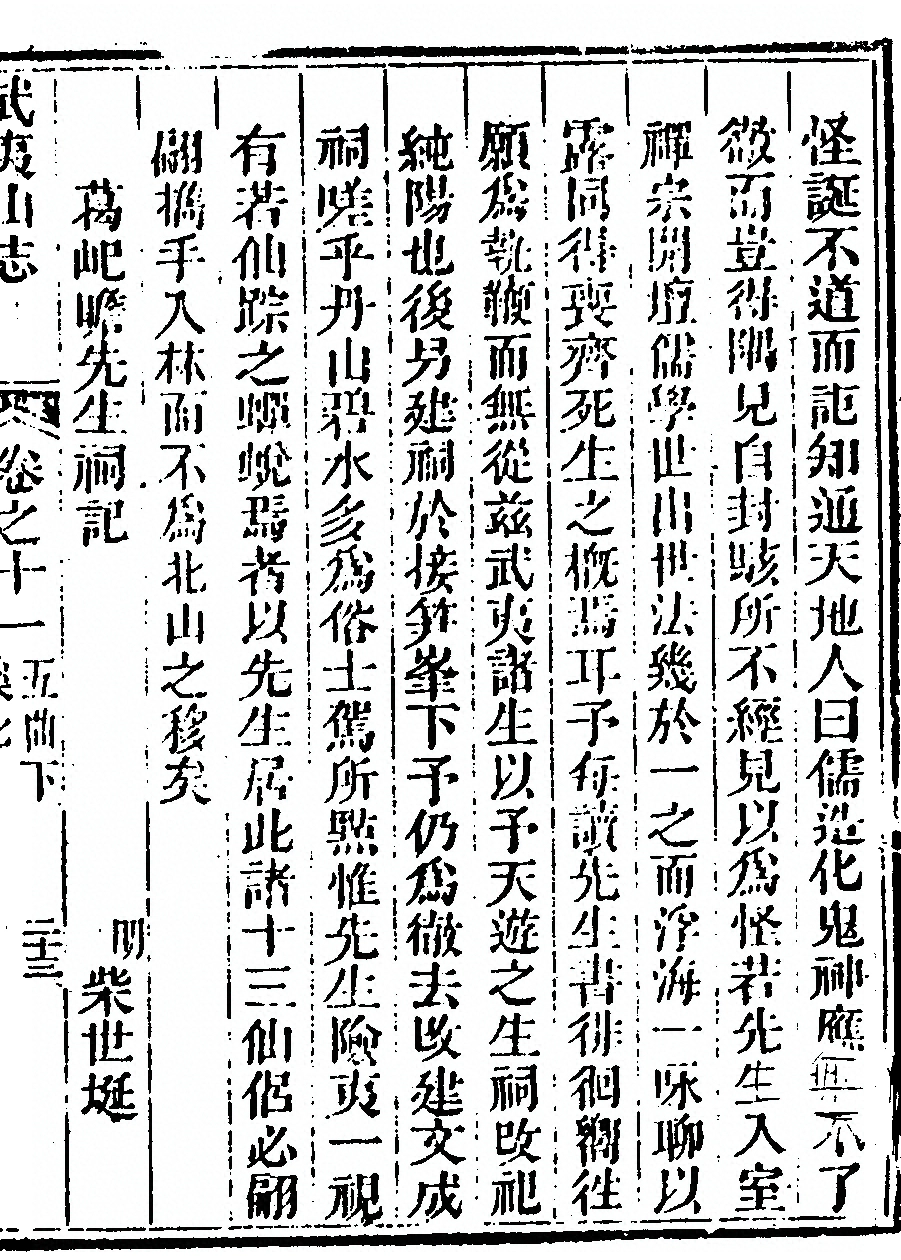 怪誕不道而詎知通天地人曰儒造化鬼神應無不了
徹而豈得隅見自封駭所不經見以為怪若先生入室
禪宗開壇儒學世出世法幾於一之而浮海一泳聊以
露同得喪齊死生之概焉耳予每讀先生書徘徊嚮往
願為執鞭而無從茲武夷諸生以予天遊之生祠改祀
純陽也後另建祠於接筍峯下予仍為徹去改建文成
祠嗟乎丹山碧水多為俗士駕所點惟先生險夷一視
有若仙踪之蟬蛻焉者以先生居此諸十三仙侶必翩
翩携手入林而不為北山之移矣
葛屺瞻先生祠記 明 柴世埏
武夷山志 卷之十一 五曲下 二十三